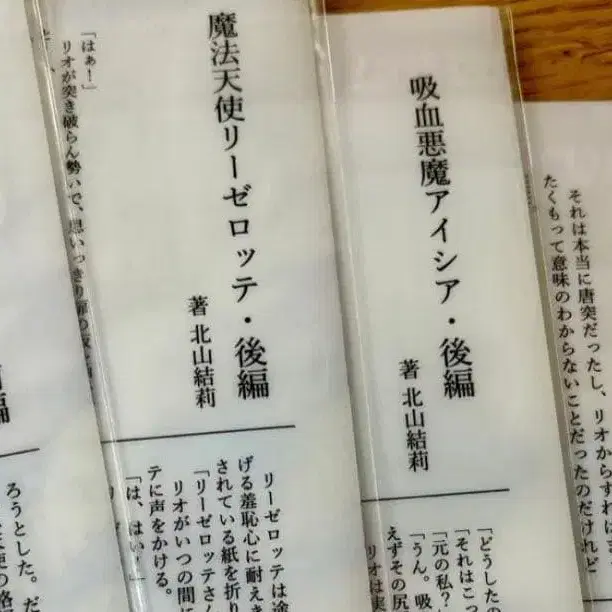 それは本当に唐突だったし、リオからすればま
たくもって意味のわからないことだったのだけれど
吸血悪魔アイシア・後編
著 北山結莉
「どうしたの
「それはこっ
「元の私？」
「うん。吸
えずその尻
リオは実
魔法天使リーゼロッテ・後編
著 北山結莉
リーゼロッテは途
げる羞恥心に耐えき
されている紙を折り
「リーゼロッテさん
リオがいつの間に
テに声をかける。
「は、はい！」
「はぁ！」
リオが突き破らん勢いで、思いっきり扉の
編
ろうとした。だ